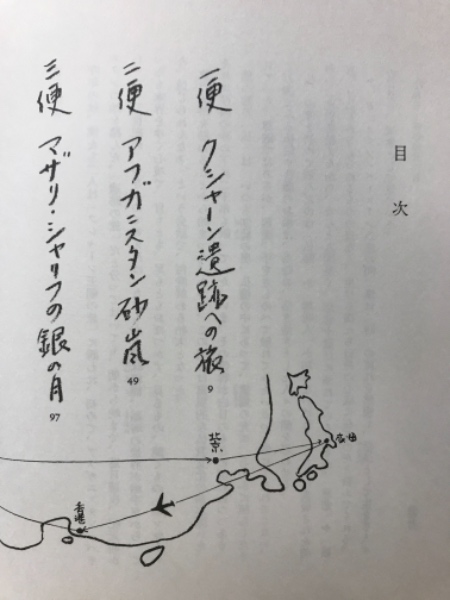 目次
一便 クシャーン遺跡への旅 9
二便 アフガニスタン砂嵐 49
三便 マザリ・シャリフの銀の月 97
香港